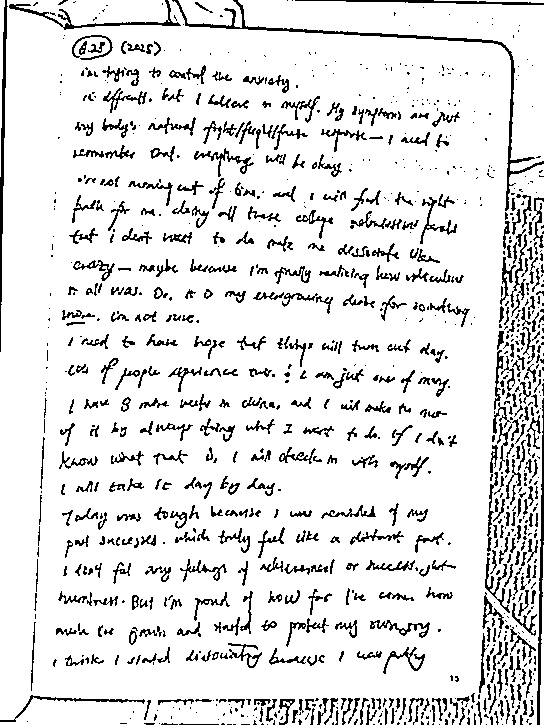 6.25 (2025)
i'm trying to control the anxiety.
it's difficult. but I believe in myself. My symptoms are just
my body's natural fight/flight/freeze response — I need to
remember that. everything will be okay.
i'm not running out of time. and I will find the right
path for me. doing all these college admissions
that i don't want to do make me dissociate like
crazy — maybe because i'm finally realizing how ridiculous
it all was. Or, it is my evergrowing desire for something
more. i'm not sure.
I need to have hope that things will turn out okay.
lots of people experience this. & I am just one of many.
I have 8 more weeks in china, and I will make the most
of it by always doing what I want to do. If I don't
know what that is, I will check in with myself.
I will take it day by day.
Today was tough because I was reminded of my
past successes. which truly feel like a distant past.
I don't feel any feelings of achievement or success. just
numbness. But I'm proud of how far I've come. how
much I've grown and started to protect my own joy.
I think I started dissociating because I was
13